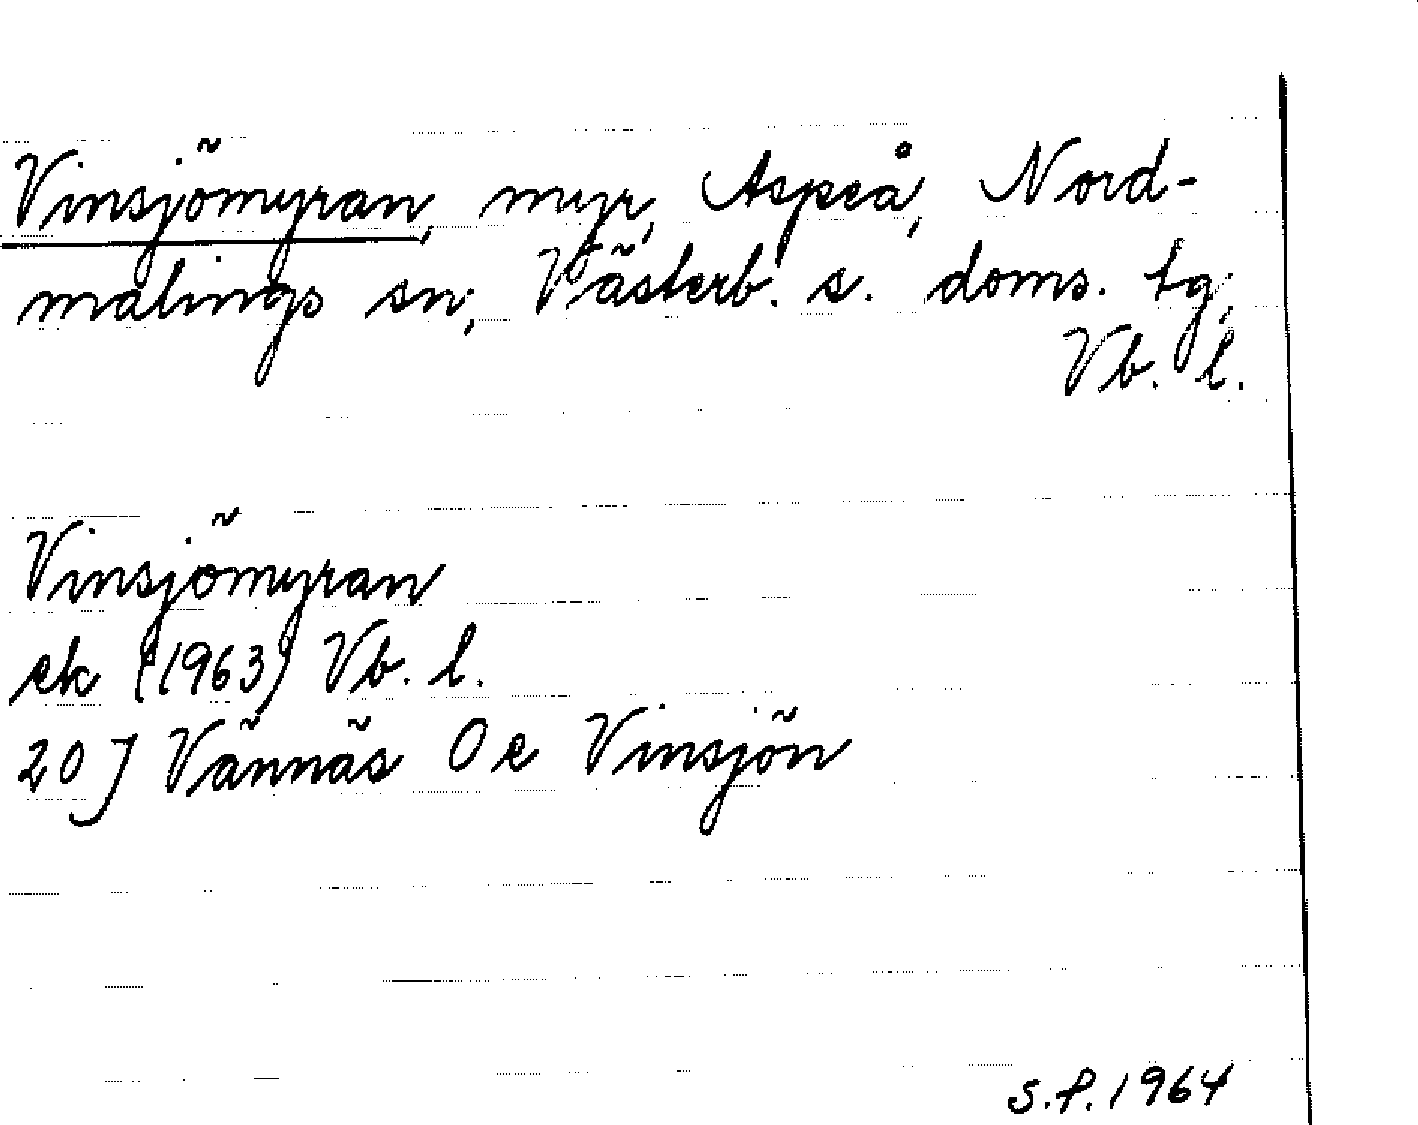 Vinsjömyran, myr, Aspeå, Nord-
malings sn, Västerb. s. doms. tg,
Vb. l.
Vinsjömyran
ek (1963) Vb. l.
20 J Vännäs O e Vinsjön
S.P. 1964